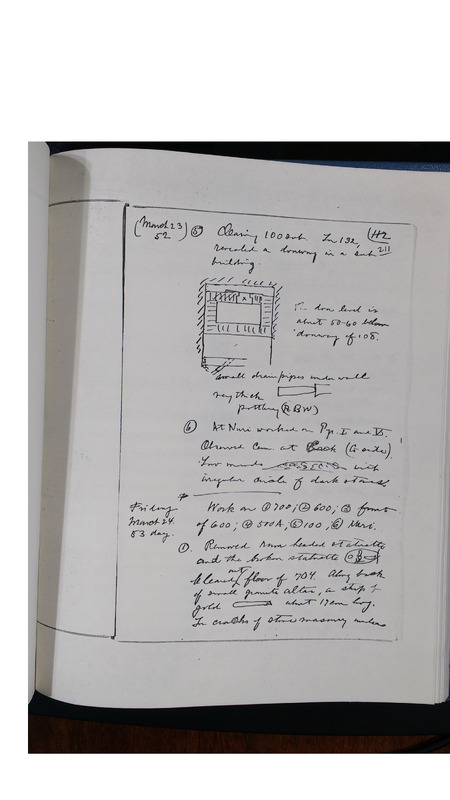 (March 23) ⑤ Clearing 100 sub. In 132, (H2
52 211
revealed a doorway in a sub
building.
The door level is
about 50-60 below
doorway of 108.
small drain pipes under wall
very thick
pottery (RBW)
⑥ At Nuri worked on Pyr. I and VI.
Observed Cem. at (G. side).
Low mounds with
irregular circle of dark stones
Friday Work on ① 700; ② 600; ③ front
March 24 of 600; ④ 500A; ⑤ 100, ⑥ Nuri.
53 day.
①. Removed ram headed statuette
and the broken statuette
Cleared out floor of 704. Along back
of small granite altar, a strip of
gold about 17 cm long.
In cracks of stone masonry